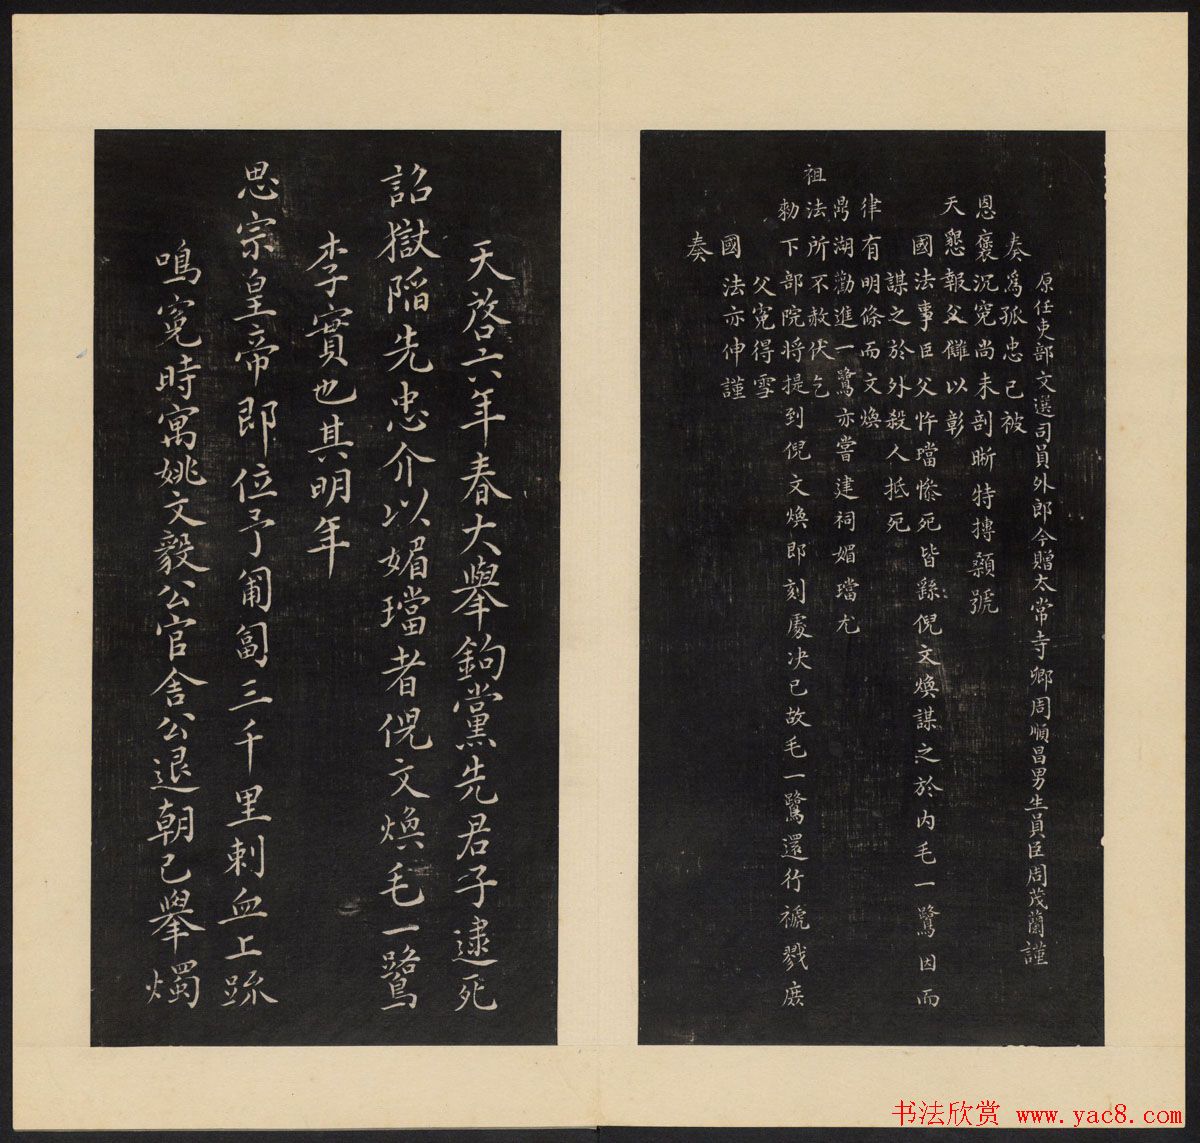 原任吏部文選司員外郎今贈太常寺卿周順昌男生員臣周茂蘭謹
奏爲孤忠已被
恩褒沉寃尚未剖晰特摶顙號
天懇報父讎以彰
國法事臣父忤璫慘死皆繇倪文煥謀之於內毛一鷺因而
謀之於外殺人抵死
律有明條而文煥
鼎湖勸進一鷺亦嘗建祠媚璫尤
祖法所不赦伏乞
勅下部院將提到倪文煥即刻處决已故毛一鷺還行褫戮庶
父寃得雪
國法亦伸謹
奏
天啓六年春大舉鉤黨先君子逮死
詔獄陷先忠介以媚璫者倪文煥毛一鷺
李實也其明年
思宗皇帝即位予匍匐三千里刺血上疏
鳴寃時寓姚文毅公官舍公退朝已舉燭
书法欣赏 www.yac8.com